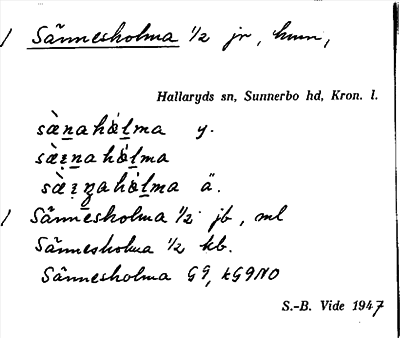 / Sännesholma 1/2 jr, hmn,
Hallaryds sn, Sunnerbo hd, Kron. l.
sæ̀n̲ahól̲ma y.
sæ̀ɪn̲ahól̲ma
sæ̀ɪn̲ahól̲ma ä.
/ Sännesholma 1/2 jb, ml
Sännesholma 1/2 kb.
Sännesholma G9, kG9NO
S.-B. Vide 1947